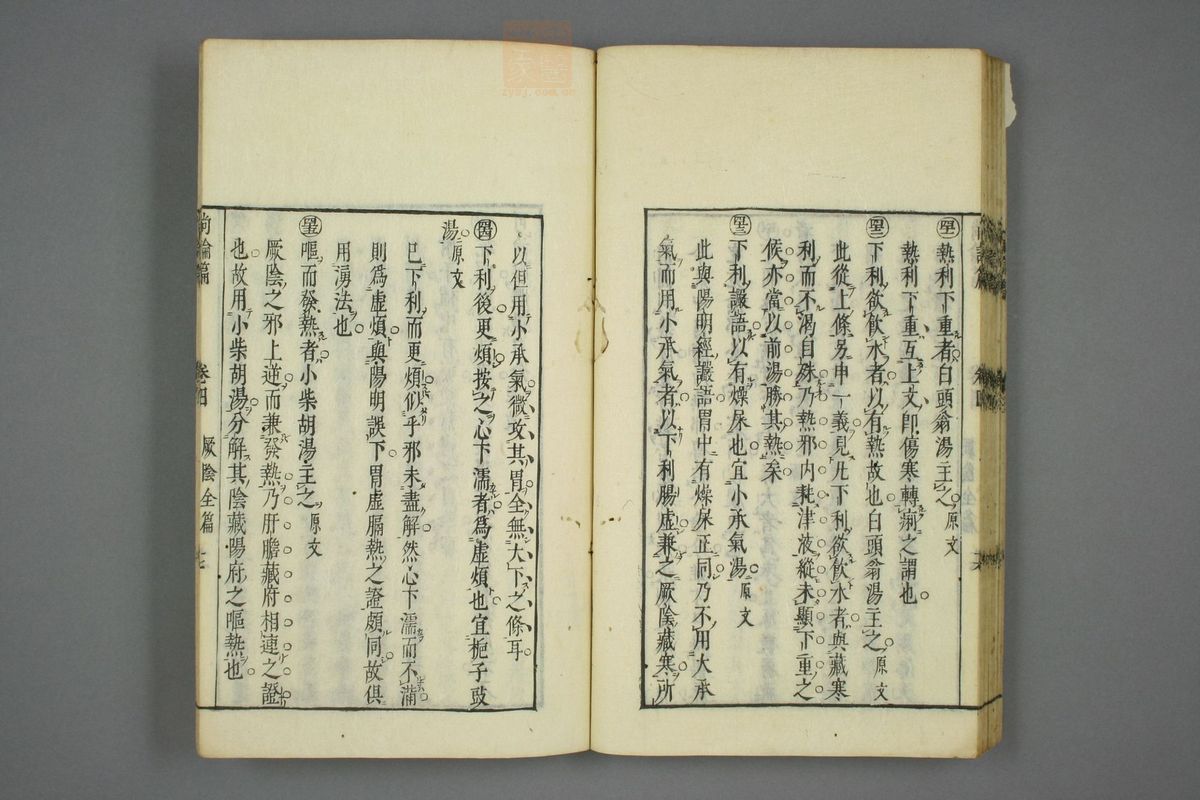 熱利下重者白頭翁湯主之原文
熱利下重互上文卽傷寒轉痢之謂也
下利欲飲水者以有熱故也白頭翁湯主之原文
此從上條另申一義見凡下利欲飲水者與藏寒
利而不渴自殊乃熱邪内耗津液縱未顯下重之
候亦當以前湯勝其熱矣
下利讝語以有燥屎也宜小承氣湯原文
此與陽明經讝語胃中有燥屎正同乃不用大承
氣而用小承氣者以下利腸虛兼之厥陰藏寒所
以但用小承氣微攻其胃全無大下之條耳
下利後更煩按之心下濡者爲虛煩也宜梔子豉
湯原文
已下利而更煩似乎邪未盡解然心下濡而不滿
則爲虛煩與陽明誤下胃虛膈熱之證頗同故俱
用湧法也
嘔而發熱者小柴胡湯主之原文
厥陰之邪上逆而兼發熱乃肝膽藏府相連之證
也故用小柴胡湯分解其陰藏陽府之嘔熱也
尚論篇 卷四 厥陰全篇